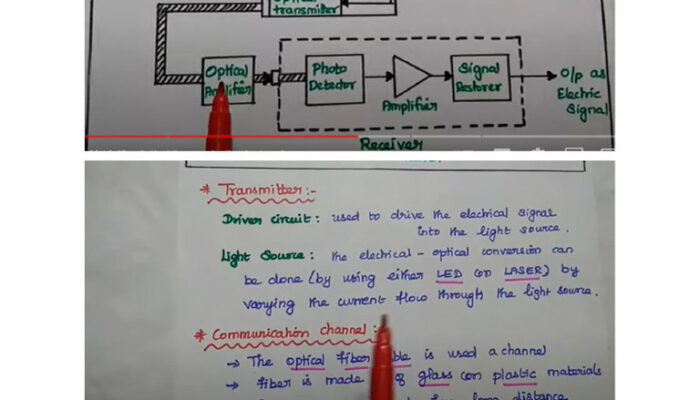 transmitter
Optical
Amplifier
Photo
Detector
Amplifier
Signal
Restorer
O/p as
Electric
Signal
Receiver
* Transmitter:-
Driver circuit : used to drive the electrical signal
into the light source.
Light Source : the electrical - optical conversion can
be done (by using either LED (or) LASER) by
varying the current flow through the light source.
* Communication channel :
→ The optical fiber cable is used a channel
→ fiber is made of glass (or) plastic materials
distance